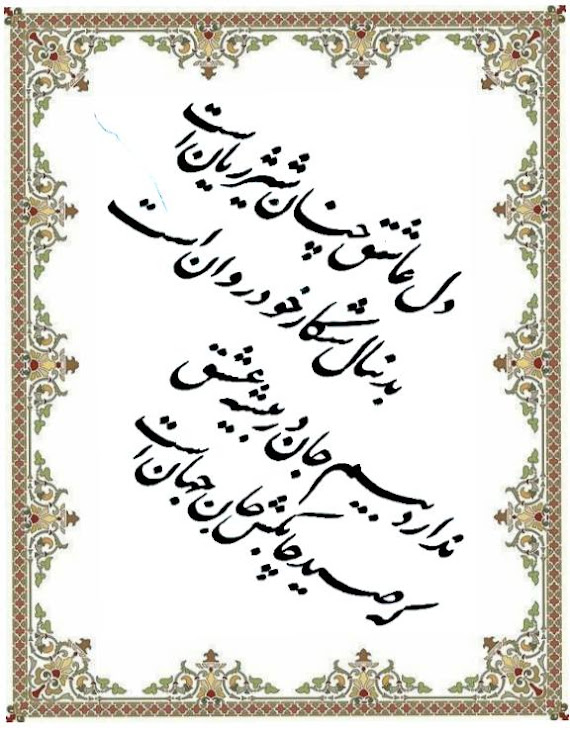 دل عاشق چنان شیر ژیان است
بدنبال شکار خود روان است
ندارد بیم جان در بیشه عشق
که صید چابکش جان جهان است